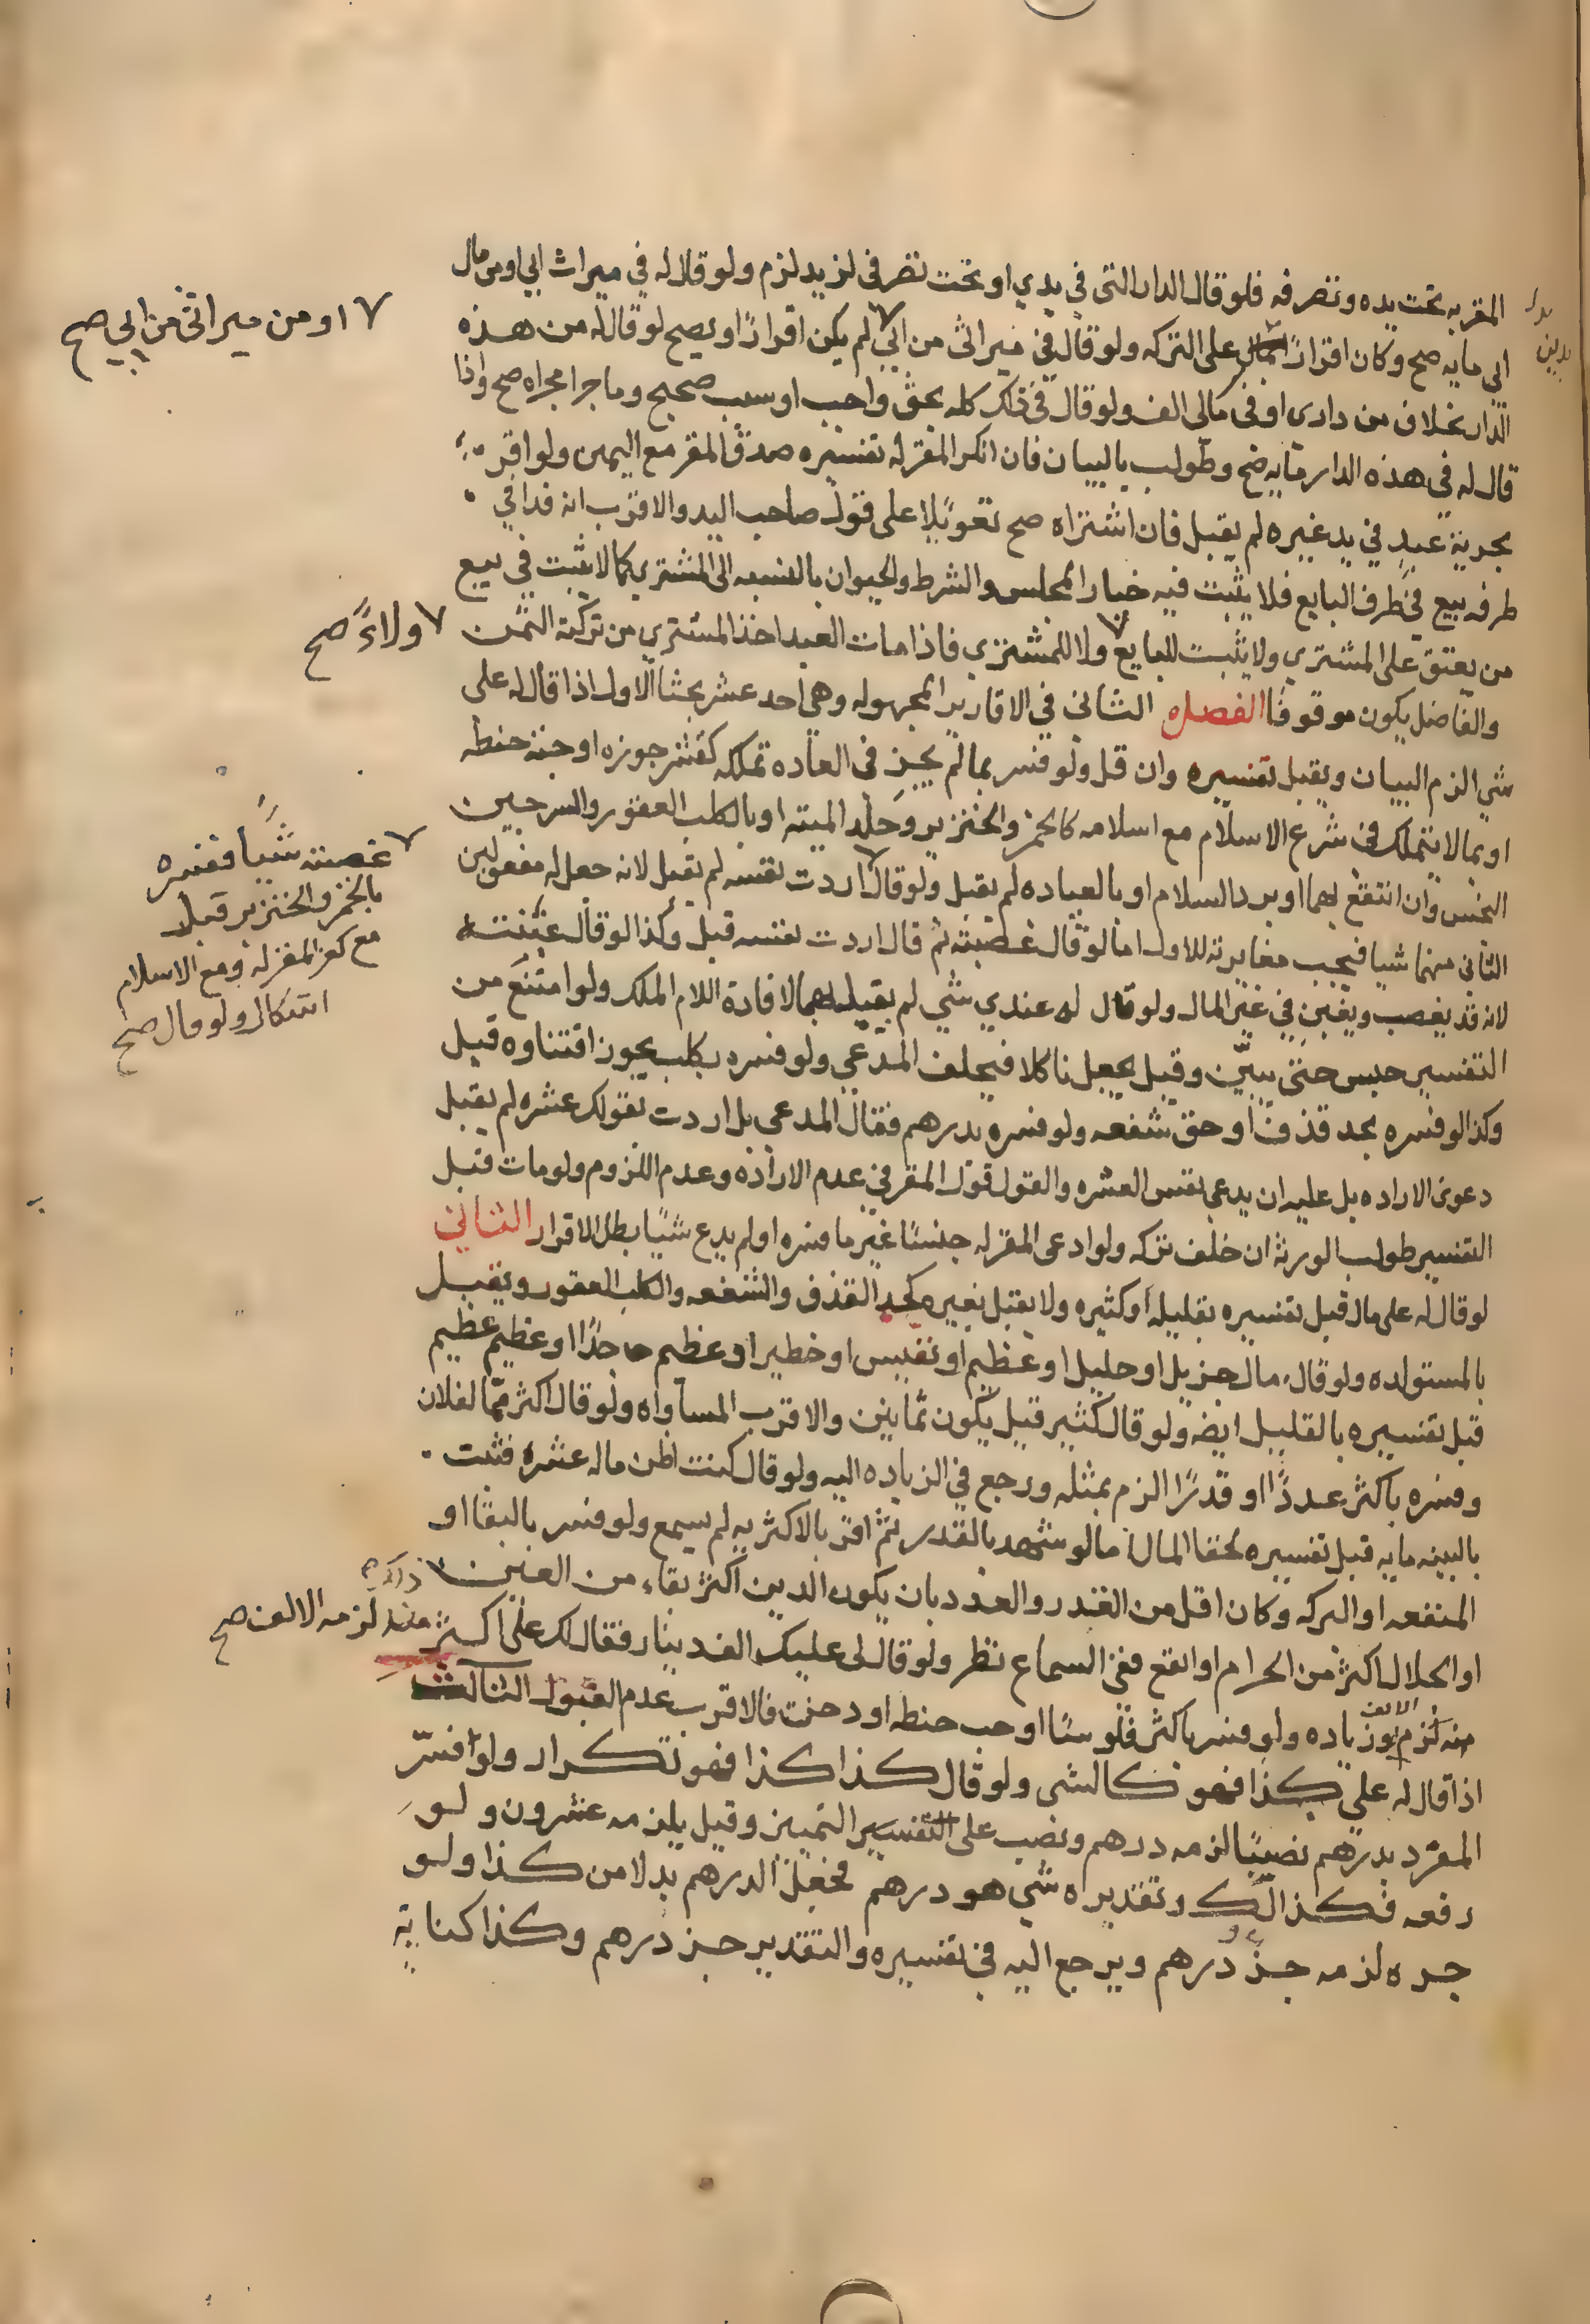 المقر به تحت يده وتصرفه فلو قال الدار التي في يدي او تحت تصرفى لزيد لزم ولو قال له في ميراث ابي او من مال
ابي مايه صح وكان اقرارًا على التركه ولو قال في ميراثى من ابي لم يكن اقرارًا ويصح لو قال له من هذه
الدار بخلاف من دارى او فى مالى الف ولو قال فى ذلك كله بحق واجب او سبب صحيح وما جرا مجراه صح واذا
قال له فى هذه الدار مايه صح وطولب بالبيان فان انكر المقر له تفسيره صدق المقر مع اليمين ولو اقر
بحرية عبد في يد غيره لم يقبل فان اشتراه صح تعويلا على قول صاحب اليد والاقرب انه فدا في
طرفه بيع في طرف البايع فلا يثبت فيه خيار المجلس والشرط والحيوان بالنسبه الى المشتري كما لا يثبت في بيع
من يعتق على المشتري ولا يثبت للبايع ولا للمشتري فاذا مات العبد اخذ المشتري من تركته الثمن
والفاضل يكون موقوفا الفصل الثانى في الاقارير المجهوله وهى احد عشر بحثا الاول اذا قال له على
شي الزم البيان ويقبل تفسيره وان قل ولو فسر بما لم يجز فى العاده تملكه كقشر جوزه او حبة حنطه
او بما لا يتملك فى شرع الاسلام مع اسلامه كالخمر والخنزير وجلد الميته او بالكلب العقور والسرجين
النجس وان انتفع بهما او برد السلام او بالعياده لم يقبل ولو قال اردت نفسه لم يقبل لانه جعل له مفعولين
الثانى منهما شيا فيجب مغايرته للاول اما لو قال غصبته ثم قال اردت نفسه قبل وكذا لو قال غبنته
لانه قد يغصب ويغبن في غير المال ولو قال له عندي شي لم يقبل بهما لافادة اللام الملك ولو امتنع من
التفسير حبس حتى يبيّن وقيل يجعل ناكلا فيحلف المدعي ولو فسره بكلب يجوز اقتناوه قبل
وكذا لو فسره بحد قذف او حق شفعه ولو فسره بدرهم فقال المدعى بل اردت بقولك عشره لم يقبل
دعوى الاراده بل عليه ان يدعى نفس العشره والقول قول المقر في عدم الاراده وعدم اللزوم ولو مات قبل
التفسير طولب الورثه ان خلف تركه ولو ادعى المقر له جنسًا غير ما فسره او لم يدع شيًا بطل الاقرار الثاني
لو قال له على مال قبل تفسيره بقليله او كثيره ولا يقبل بغيره كحد القذف والشفعه والكلب العقور ويقبل
بالمستولده ولو قال مال جزيل او جليل او عظيم او نفيس او خطير او عظيم جدًا او عظيم عظيم
قبل تفسيره بالقليل ايضه ولو قال كثير قيل يكون ثمانين والاقرب المساواه ولو قال اكثر مما لفلان
وفسره باكثر عددًا او قدرًا الزم بمثله ورجع في الزياده اليه ولو قال كنت اظن ماله عشره فثبت
بالبينه مايه قبل تفسيره لخفا المال اما لو شهد بالقدر ثم اقر بالاكثريه لم يسمع ولو فسر بالبقا او
المنفعه او البركه وكان اقل من القدر والعدد بان يكون الدين اكثر بقاء من العين
او الحلال اكثر من الحرام او انفع ففى السماع نظر ولو قال لى عليك الف دينار فقال لك على اكثر
منه لزم الالف وزياده ولو فسر باكثر فلوسًا او حب حنطه او دخن فالاقرب عدم القبول الثالث
اذا قال له علي كذا فهو كالشى ولو قال كذا كذا فهو تكرار ولو فسّر
المفرد بدرهم نصبًا لزمه درهم ونصب على التفسير التمييز وقيل يلزمه عشرون ولو
رفعه فكذلك وتقديره شي هو درهم فجعل الدرهم بدلا من كذا ولو
جره لزمه جز درهم ويرجع اليه في تفسيره والتقدير جز درهم وكذا كناية
او من ميراثى من ابي صح
ولاءً صح
غصبته شيًا ففسره
بالخمر والخنزير قبل
مع كفر المقر له ومع الاسلام
اشكال ولو قال صح
منه لزمه الالف صح